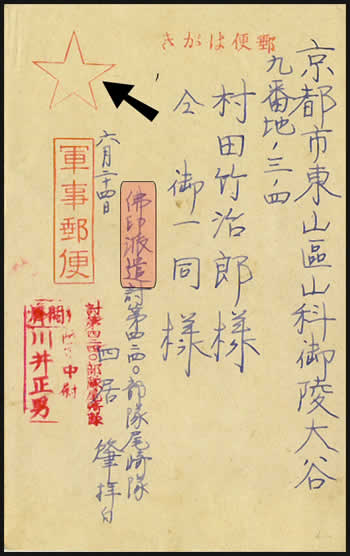 郵便はがき
京都市東山區山科御陵大谷
九番地ノ三ノ四
村田竹治郎様
仝 御一同様
六月二十四日
軍事郵便
佛印派遣討第四二四〇部隊尾崎隊
四居 肇拝白
討第四二四〇部隊尾崎隊
中尉
川井正男